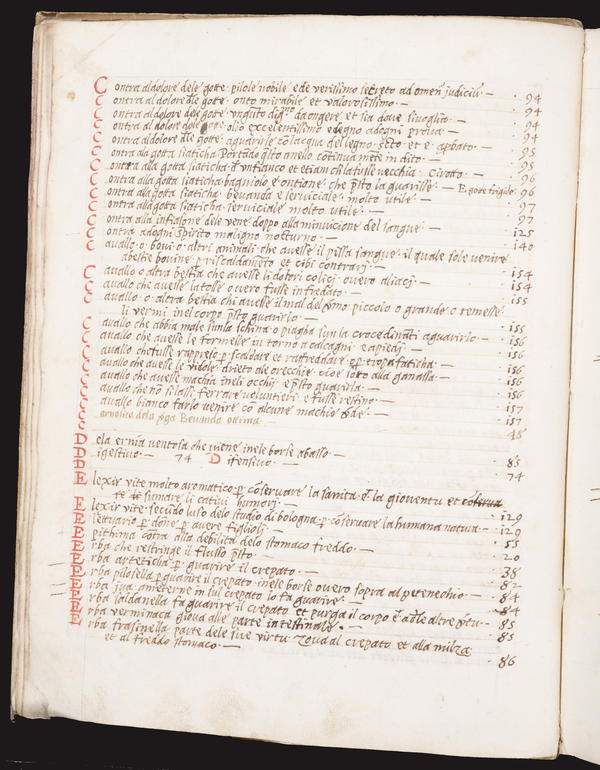 Contra al dolore dele gotte pilole nobile ede verissimo secreto ad omeñ judiciũ · 94
Contra al dolore dle gotte · onto mirabile et valorosissimo · 94
Contra al dolore dele gotte · vnguto da ongere et sia doue si uoglia · 94
Contra al dolore dele gotte olio excelentissimo edegno adogni proua · 94
Contra al dolore dle gotte · aguarirle cõ lacqua del legno seto et e apbato · 95
Contra ala gotta siaticha portado q̃sto anello cõtinua mete in dito · 95
Contra alla gotta siaticha · vecchia · Curato · 96
Contra alla gotta siaticha · bagniolo e ontione che p̃sto la guarisse · E gotte frigide 96
Contra alla gotta siaticha · beuanda e seruiciale · molto utile · 97
Contra alla gotta siaticha seruiciale molto utile · 97
Contra alla infiasone dele vene doppo alla minuicione del sangue · 125
Contra adogni Spirito maligno nocturno · 140
Cauallo o boui o altri animali che auesse il pissa sangue il quale sole venire
a bestie bouine p riscaldameto et cibi contrarj · 154
Cauallo o altra bestia che auesse li dolori colicj ouero aliacj · 154
Cauallo che auesse la tosse o uero fusse infredato · 155
Cauallo · o altra bestia chi auesse il mal del ṽmo piccolo o grande o remesse
li vermi inel corpo p̃sto guarirlo · 155
Cauallo che abbia male sunla schina o piagha sun la croce dinãti aguarirlo · 156
Cauallo che auesse le formelle in torno a calcagni e apiedj · 156
Cauallo che fusse rappreso p scaldare et raffreddare o p tropa faticha · 156
Cauallo che auesse le viuole drieto ale orecchie cioe soto alla ganassa · 156
Cauallo che auesse machia ineli occhij e p̃sto guarirla · 156
Cauallo che nõ si lassi ferrare voluntieri e fusse restino · 157
Cauallo bianco farlo venire cõ alcune machie · 157
Beuanda ottima · 48
Dela ernia ventosa che viene inele borse abasso · 85
Digestiuo · 74 Difensiuo · 74
Elexir vite molto aromatico p cõseruare la sanita e la giouentu et cõserua
sumare li catiui humorj · 129
Elexir vite · secũdo luso delo studio di bologna p cõseruare la humana natura · 129
Elettuario p done p auere figliolj · 55
Epithima cõtra alla debilita delo stomaco freddo · 20
Erba che restringe il flusso p̃sto · 38
Erba arteticha p guarire il crepato · 82
Erba pilosella p guarire il crepato inele borse ouero sopra al petenechio · 84
Erba iua meterne in sul crepato lo fa guarire · 84
Erba saldanella fa guarire il crepato et purga il corpo · 85
Erba verminaca gioua alle parte intestinale · 85
Erba frasinella parte dele sue virtu gioua al crepato et alla milza
et al freddo stomaco · 86